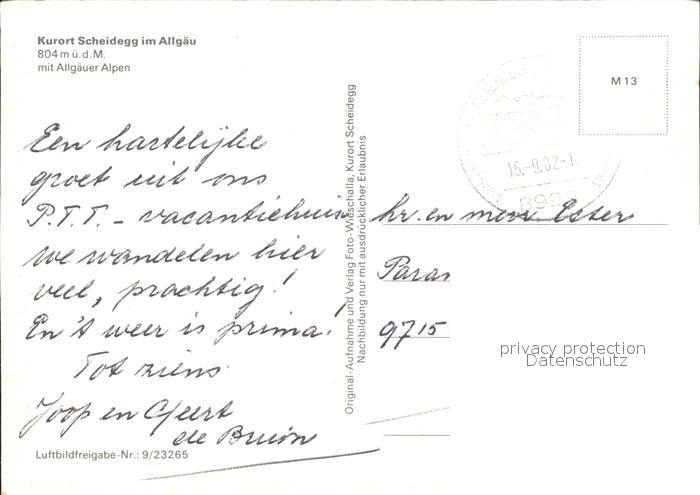 Kurort Scheidegg im Allgäu
804 m ü. d. M.
mit Allgäuer Alpen
Een hartelijke
groet uit ons
P.T.T. - vacantiehuis
we wandelen hier
veel, prachtig!
En 't weer is prima.
Tot ziens
Joop en Geert
de Bruin
Luftbildfreigabe-Nr.: 9/23265
Original-Aufnahme und Verlag Foto-Wieschalla, Kurort Scheidegg
Nachbildung nur mit ausdrücklicher Erlaubnis
M 13
15.-9.82-1
899
hr. en mevr Esser
Paras
9715
privacy protection
Datenschutz